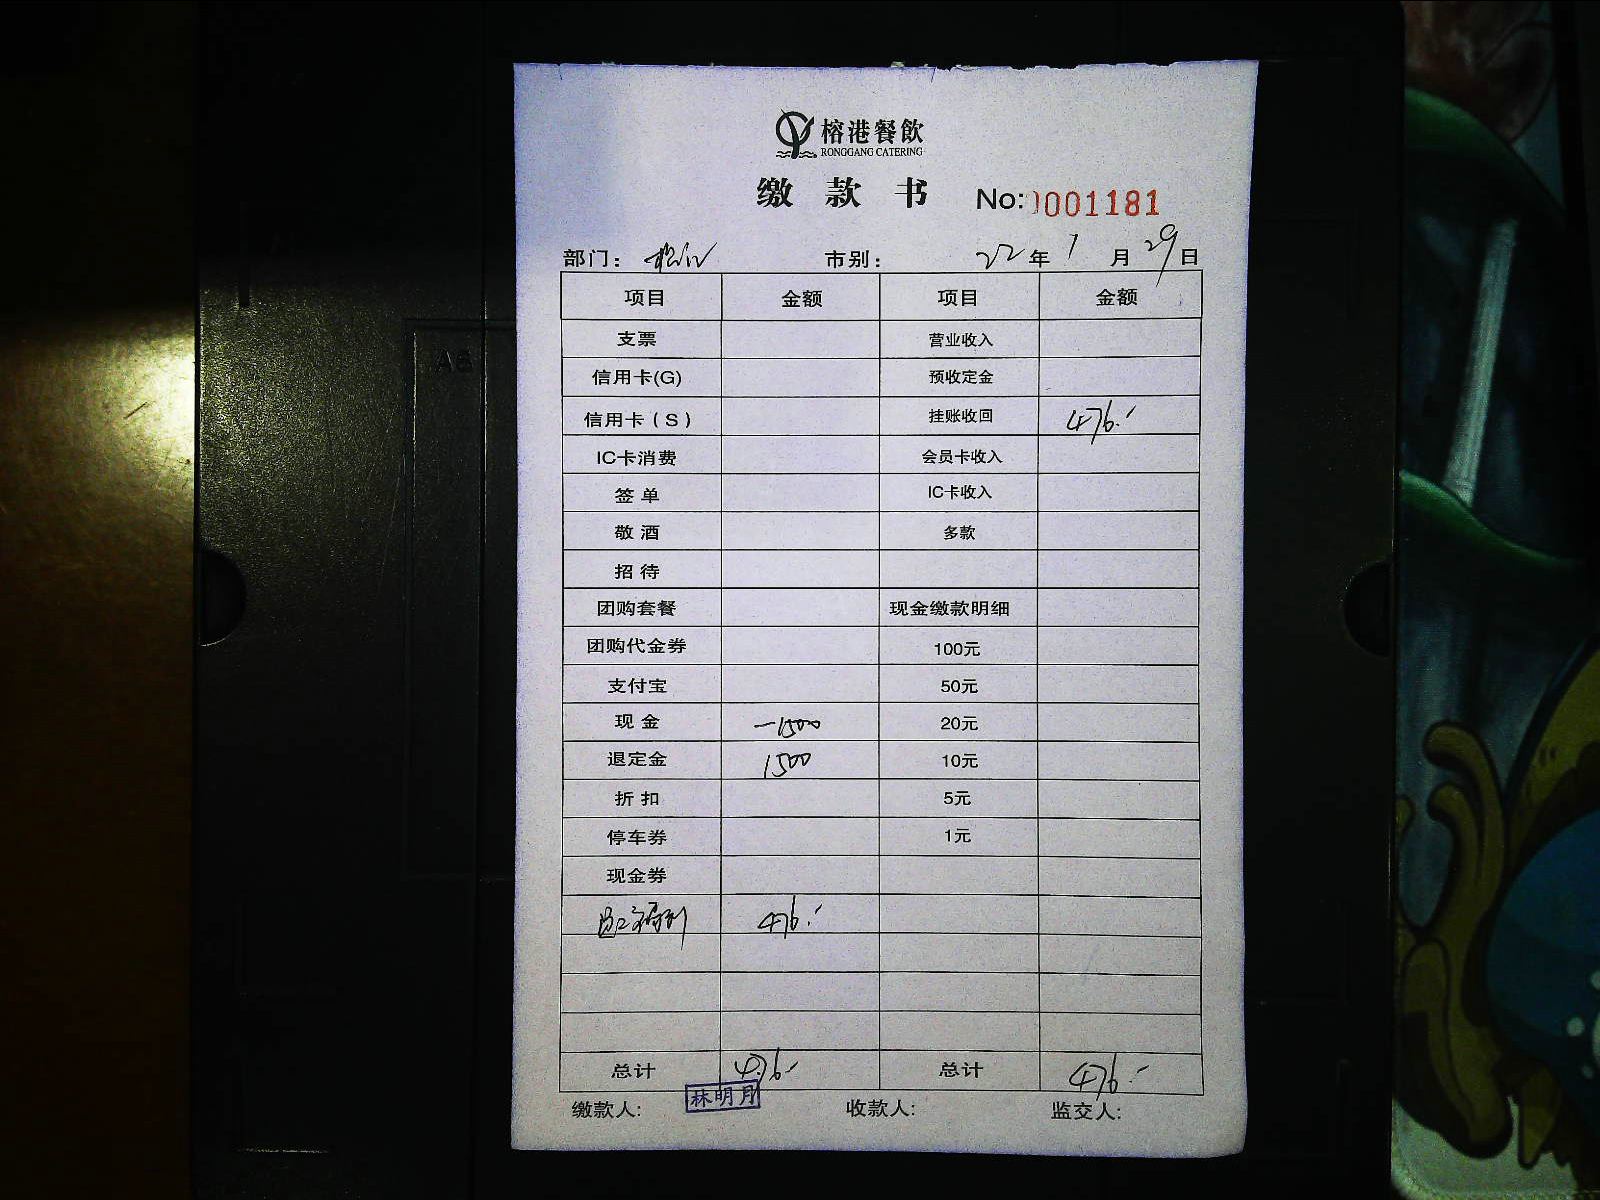 榕港餐飲
RONGGANG CATERING
缴款书 No:0001181
部门: 市别: 22年1月29日
项目 金额 项目 金额
支票 营业收入
信用卡(G) 预收定金
信用卡(S) 挂账收回 476.-
IC卡消费 会员卡收入
签单 IC卡收入
敬酒 多款
招待
团购套餐 现金缴款明细
团购代金券 100元
支付宝 50元
现金 -1500 20元
退定金 1500 10元
折扣 5元
停车券 1元
现金券
476.-
总计 476.- 总计 476.-
缴款人: 林明月 收款人: 监交人:
A5